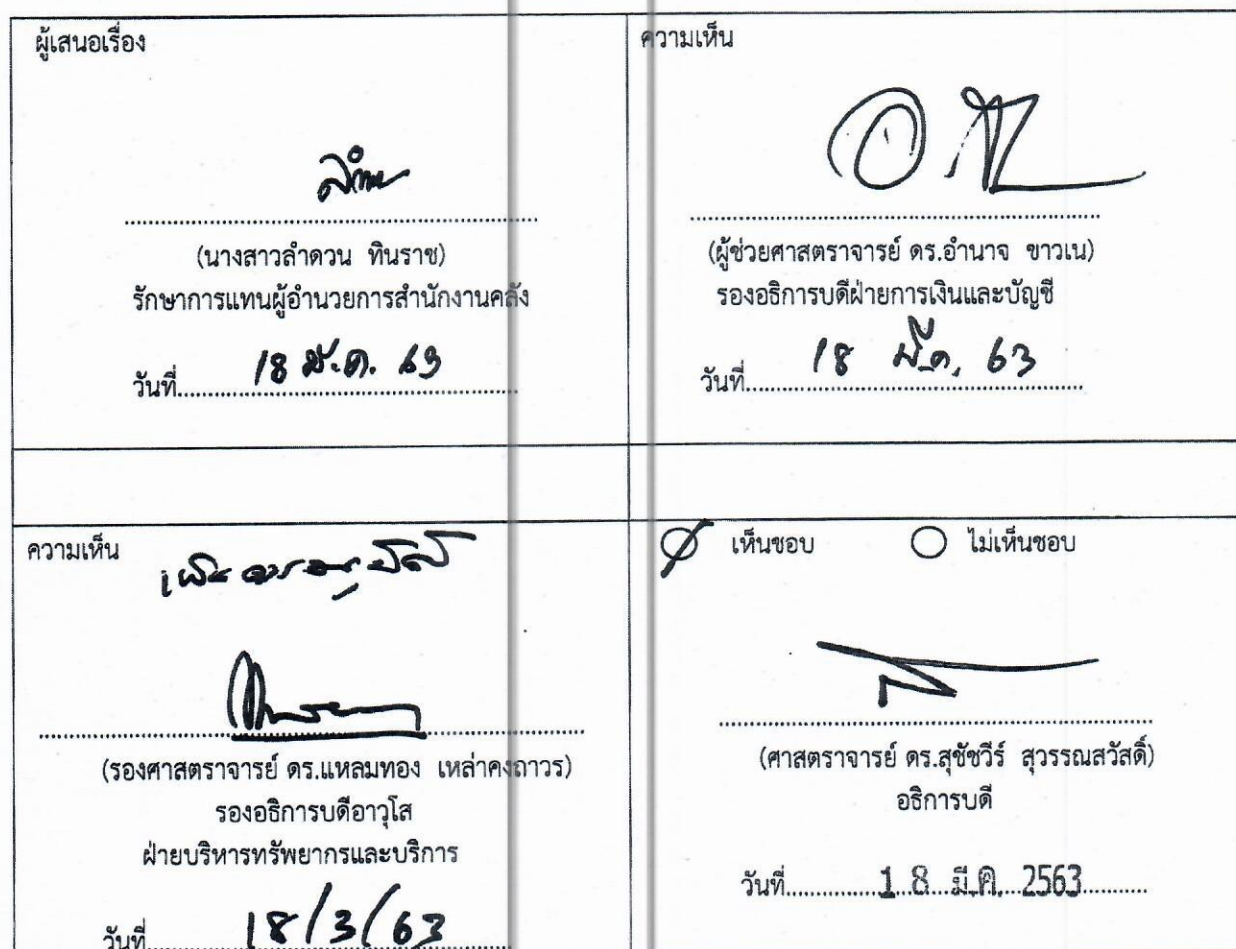 ผู้เสนอเรื่อง
(นางสาวลำดวน ทินราช)
รักษาการแทนผู้อำนวยการสำนักงานคลัง
วันที่ 18 มี.ค. 63
ความเห็น
(ผู้ช่วยศาสตราจารย์ ดร.อำนาจ ขาวเน)
รองอธิการบดีฝ่ายการเงินและบัญชี
วันที่ 18 มี.ค. 63
ความเห็น
เห็นควรอนุมัติ
(รองศาสตราจารย์ ดร.แหลมทอง เหล่าคงถาวร)
รองอธิการบดีอาวุโส
ฝ่ายบริหารทรัพยากรและบริการ
วันที่ 18/3/63
เห็นชอบ ไม่เห็นชอบ
(ศาสตราจารย์ ดร.สุชัชวีร์ สุวรรณสวัสดิ์)
อธิการบดี
วันที่ 18 มี.ค. 2563